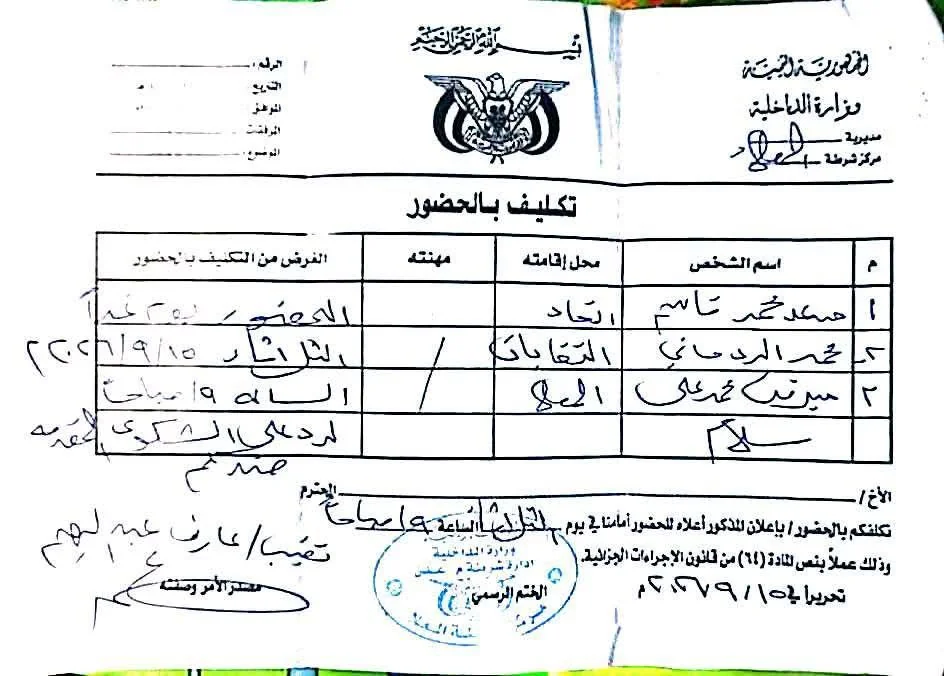 بسم الله الرحمن الرحيم
الجمهورية اليمنية
وزارة الداخلية
مديرية
مركز شرطة المعلا
الرقم:
التاريخ
الموافق
المرفقات
الموضوع:
تكليف بالحضور
م اسم الشخص محل إقامته مهنته الغرض من التكليف بالحضور
١ محمد قاسم اتحاد الحضور يوم غداً
٢ محمد الردماني النقابات الثلاثاء ٢٠٢٦/٩/١٥م
٣ محمد علي المعلا الساعة ٩ صباحاً
سلام لرد على الشكوى المقدمة
ضدكم
الأخ/ المحترم
نكلفكم بالحضور / بإعلان المذكور أعلاه للحضور أمامنا في يوم الثلاثاء الساعة ٩ صباحاً
وذلك عملاً بنص المادة (٦٤) من قانون الإجراءات الجزائية.
تحريراً في ٢٠٢٦/٩/١٥م
الختم الرسمي
نقيب/ عارف
مصدر الأمر وصفته
وزارة الداخلية
ادارة شرطة م عدن